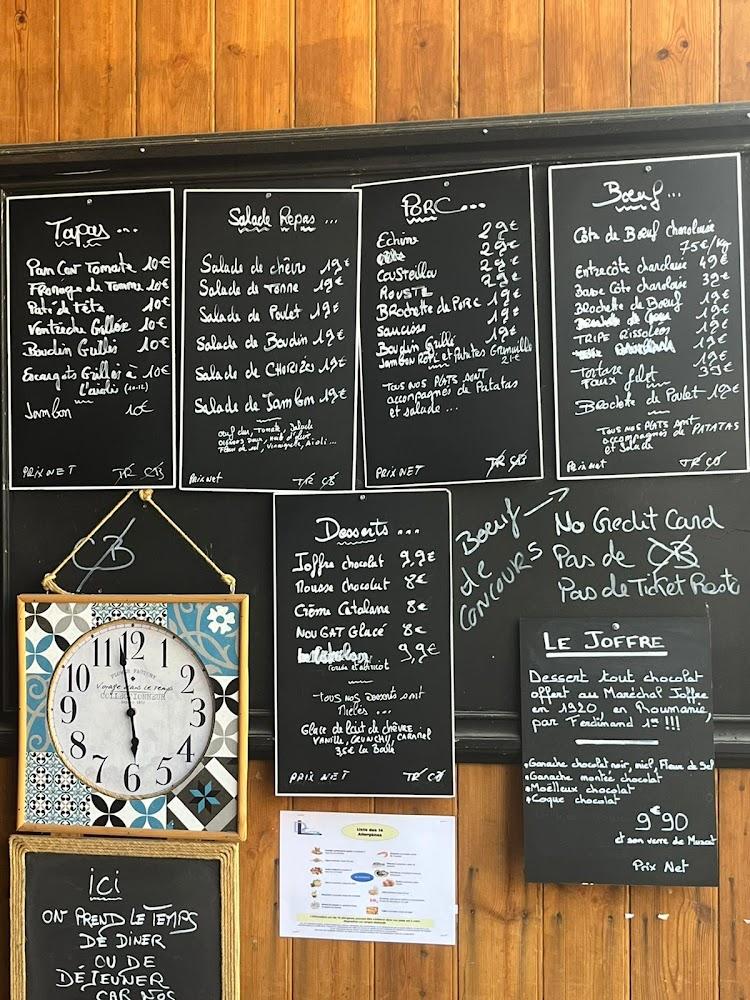 Tapas ...
Pan Con Tomate 10€
Fromage de Tomme 10€
Paté de Tête 10€
Ventrèche Grillée 10€
Boudin Grillé 10€
Escargots Grillés à 10€
l'aïoli (10-12)
Jambon 10€
PRIX NET TR CB
Salade Repas ...
Salade de chèvre 19€
Salade de Tomme 19€
Salade de Poulet 19€
Salade de Boudin 19€
Salade de CHORIZO 19€
Salade de Jambon 19€
Oeuf dur, Tomate, Salade
Fleur de sel, Vinaigrette, Aïoli...
Prix net TR CB
PORC...
Echine 29€
29€
Coustellou 29€
ROUSTE 29€
BROCHETTE de PORC 19€
Saucisse 19€
Boudin Grillé 19€
JAMBON ROTI et Patates Grenaille
21€
TOUS NOS PLATS SONT
accompagnés de Patatas
et salade ...
PRIX NET TR CB
Bœuf...
Côte de Bœuf charolaise
75€/Kg
Entrecôte charolaise 49€
Basse Côte charolaise 39€
Brochette de Bœuf 19€
19€
TRIPE RISSOLÉES 19€
19€
Tartare 19€
Faux filet 39€
Brochette de Poulet 19€
TOUS NOS PLATS sont
accompagnés de PATATAS
et Salade
Prix net TR CB
CB
Desserts ...
Joffre chocolat 9,9€
Mousse chocolat 8€
Crème Catalane 8€
NOUGAT Glacé 8€
9,9€
TOUS NOS Desserts sont
Glace de lait de chèvre
VANILLE, CRUNCHY, CARAMEL
3,5€ la Boule
PRIX NET TR CB
Bœuf
de
CONCOURS
No Credit Card
Pas de CB
Pas de Ticket Resto
LE JOFFRE
Dessert tout chocolat
offert au Maréchal Joffre
en 1920, en Roumanie,
par Ferdinand 1er !!!
• Ganache chocolat noir, miel, Fleur de Sel
• Ganache montée chocolat
• Moëlleux chocolat
• Coque chocolat
9€90
et son verre de Muscat
Prix Net
12 1 2 3 4 5 6 7 8 9 10 11
Voyage dans le temps
COLLECTIONNEUR
Liste des 14
Allergènes
ici
ON PREND LE TEMPS
DE DINER
OU DE
DÉJEUNER
CAR NOS